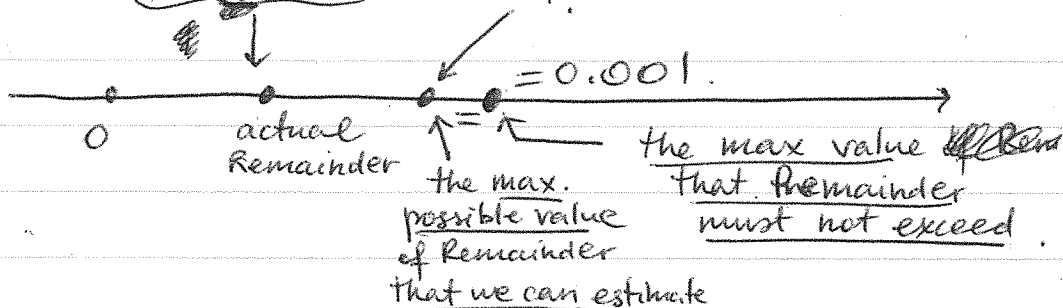 = 0.001.
0
actual
Remainder
=
the max.
possible value
of Remainder
that we can estimate
the max value
that Remainder
must not exceed.